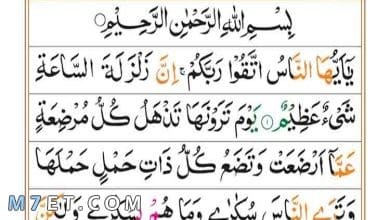 بِسْمِ اللهِ الرَّحْمٰنِ الرَّحِيْمِ
يٰٓاَيُّهَا النَّاسُ اتَّقُوْا رَبَّكُمْ ۚ اِنَّ زَلْزَلَةَ السَّاعَةِ
شَىْءٌ عَظِيْمٌ ۝۱ يَوْمَ تَرَوْنَهَا تَذْهَلُ كُلُّ مُرْضِعَةٍ
عَمَّآ اَرْضَعَتْ وَتَضَعُ كُلُّ ذَاتِ حَمْلٍ حَمْلَهَا
وَتَرَى النَّاسَ سُكٰرٰى وَمَا هُمْ بِسُكٰرٰى وَلٰكِنَّ
M7ET.COM